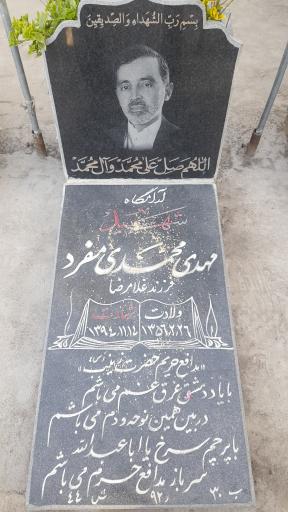 بِسْمِ رَبِّ الشُّهَداءِ وَالصِّدیقینَ
اللّهُمَّ صَلِّ عَلی مُحَمَّدٍ وَآلِ مُحَمَّد
آرامگاه
شهید
مهدی محمدی مفرد
فرزند غلامرضا
ولادت شهادت
۱۳۵۶.۲.۲۶ ۱۳۹۴.۱۱.۱۴
«مدافع حرم حضرت زینب (س)»
با یاد دمشق غرق غم می باشم
در بین همین نوحه و دم می باشم
با پرچم سرخ یا ابا عبدالله
سرباز مدافع حرم می باشم
ب ۳۰ ر ۹۲ ش ۴۴